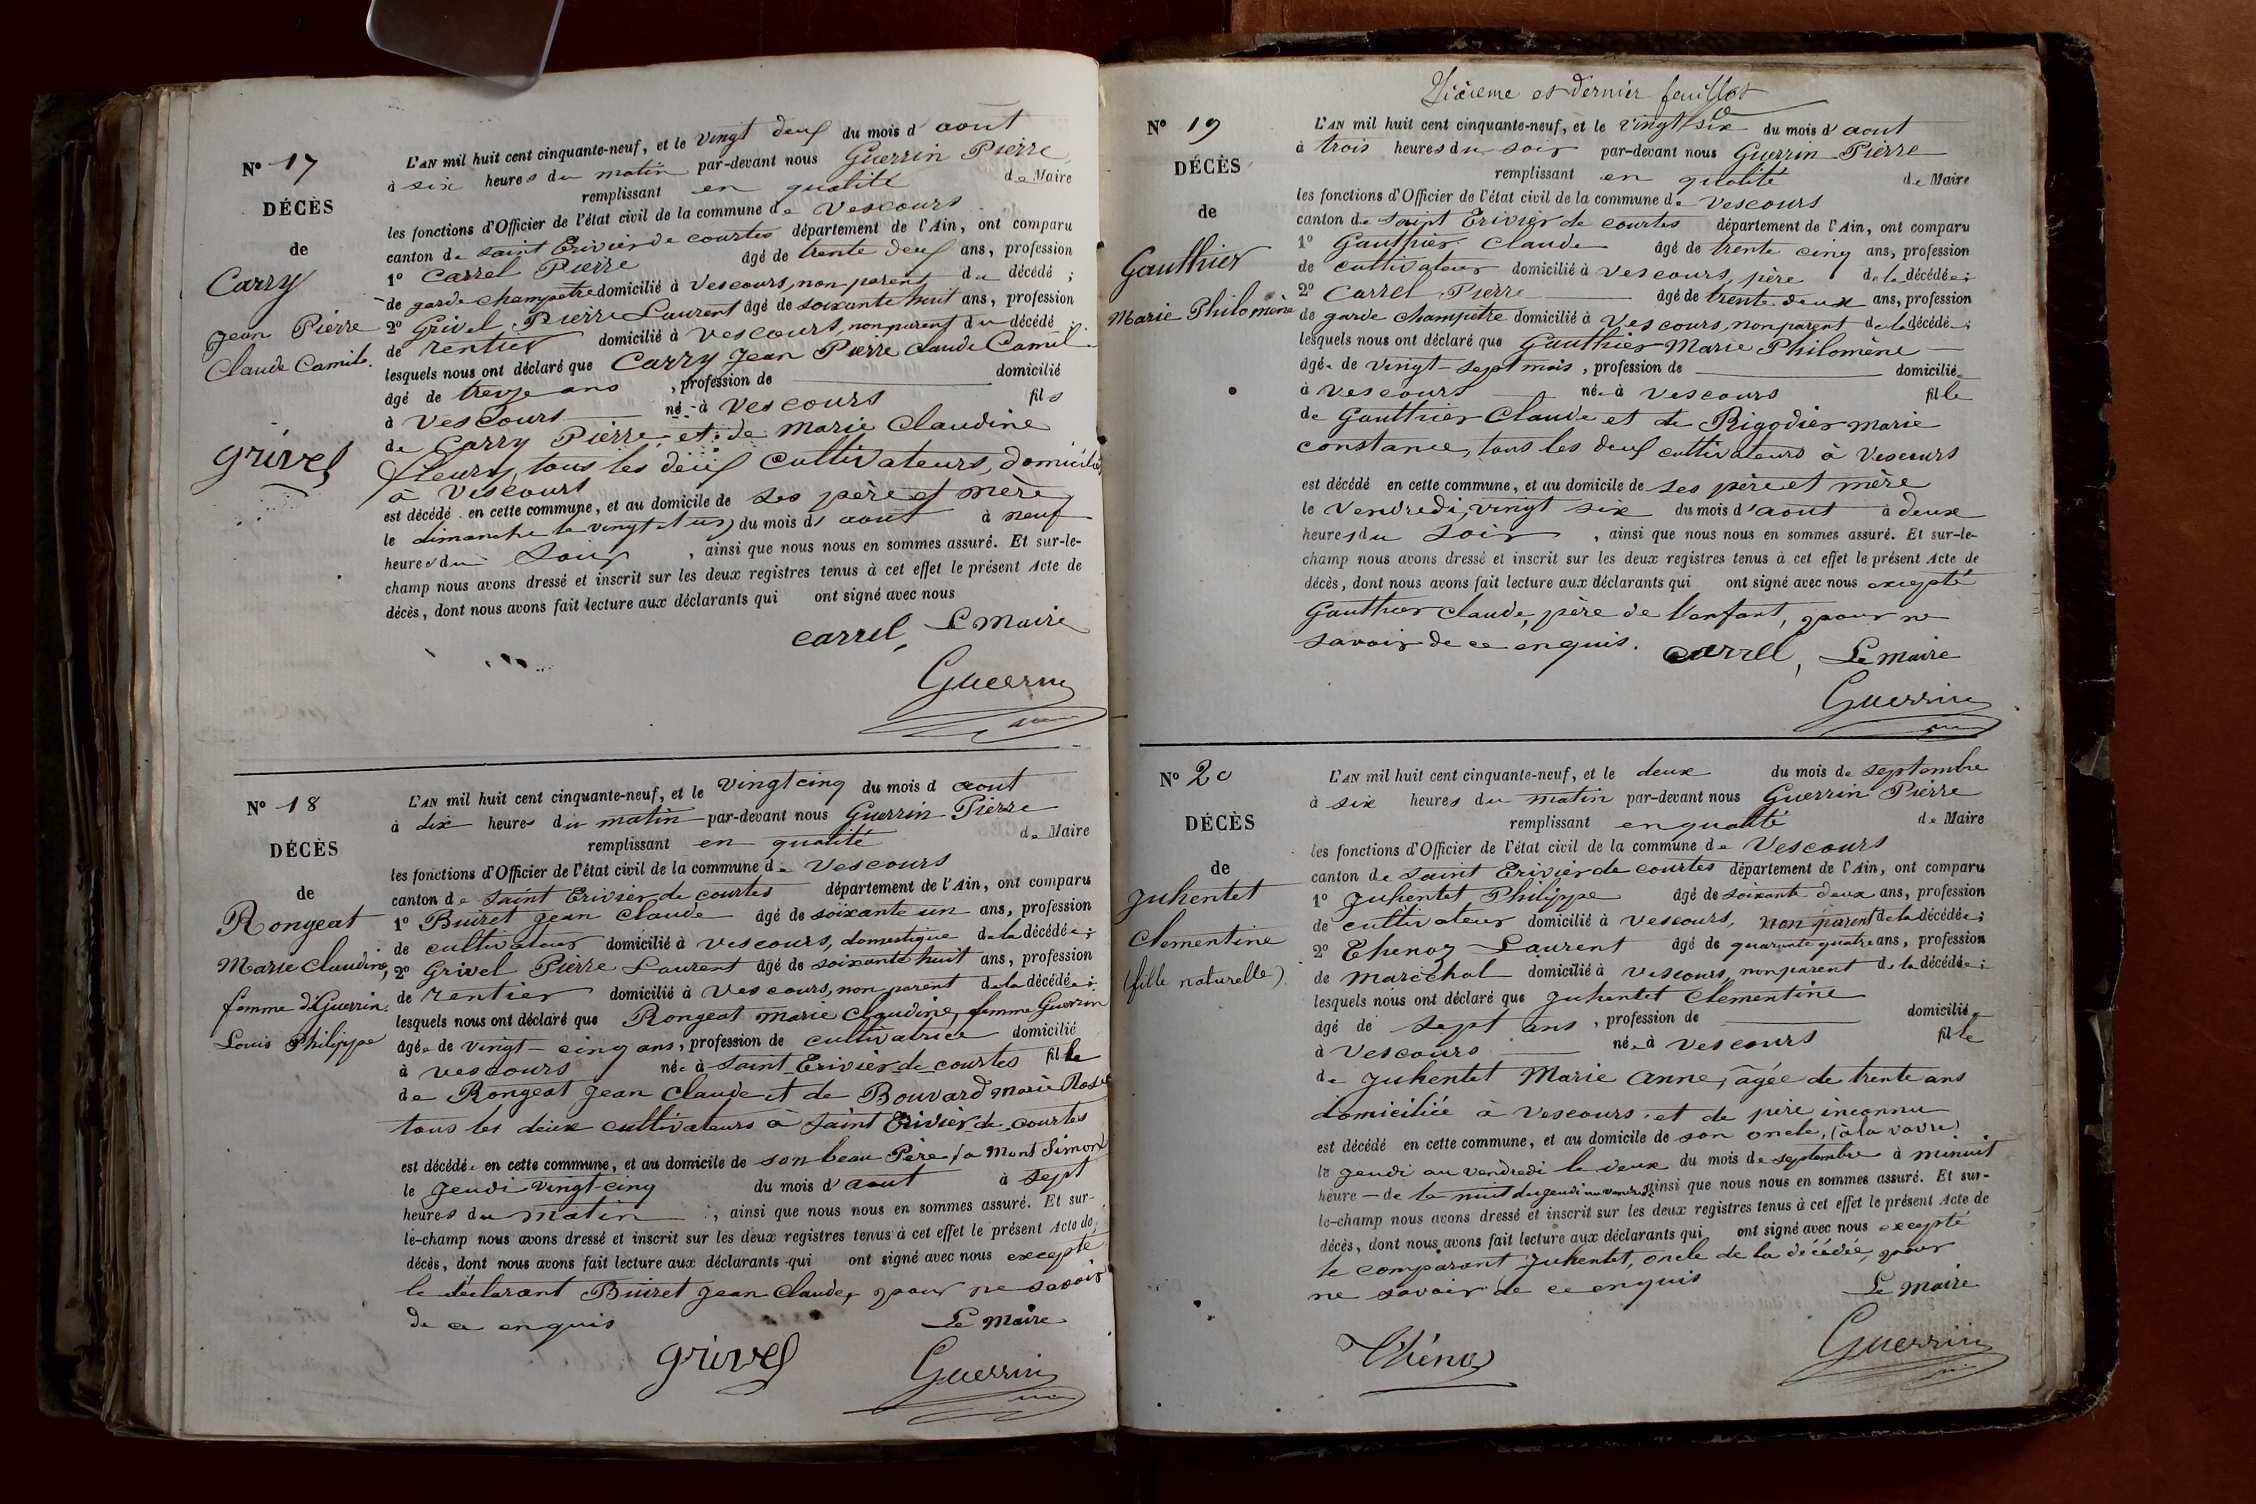 N° 17
DÉCÈS
de
Carry
Jean Pierre
Claude Camil.
grivel
L'AN mil huit cent cinquante-neuf, et le vingt deux du mois d' aout
à six heures du matin par-devant nous Guerrin Pierre
remplissant en qualité de Maire
les fonctions d'Officier de l'état civil de la commune de Vescours
canton de saint Trivier de courtes département de l'Ain, ont comparu
1° Carrel Pierre âgé de trente deux ans, profession
de garde champetre domicilié à Vescours, non parent du décédé ;
2° Grivel Pierre Laurent âgé de soixante huit ans, profession
de rentier domicilié à Vescours, non parent du décédé ;
lesquels nous ont déclaré que Carry Jean Pierre Claude Camil
âgé de treize ans , profession de domicilié
à Vescours né à Vescours fils
de Carry Pierre et de Marie Claudine
fleury, tous les deux cultivateurs, domiciliés
à Vescours
est décédé en cette commune, et au domicile de ses père et mère
le dimanche le vingt et un du mois d' aout à neuf
heures du soir , ainsi que nous nous en sommes assuré. Et sur-le-
champ nous avons dressé et inscrit sur les deux registres tenus à cet effet le présent Acte de
décès, dont nous avons fait lecture aux déclarants qui ont signé avec nous
carrel, Le Maire
Guerrin
N° 18
DÉCÈS
de
Rongeat
Marie Claudine,
femme de Guerrin
Louis Philippe
L'AN mil huit cent cinquante-neuf, et le vingt cinq du mois d aout
à dix heures du matin par-devant nous Guerrin Pierre
remplissant en qualité de Maire
les fonctions d'Officier de l'état civil de la commune de Vescours
canton de saint Trivier de courtes département de l'Ain, ont comparu
1° Buiret Jean Claude âgé de soixante un ans, profession
de cultivateur domicilié à Vescours, domestique de la décédée ;
2° Grivel Pierre Laurent âgé de soixante huit ans, profession
de rentier domicilié à Vescours, non parent de la décédée ;
lesquels nous ont déclaré que Rongeat Marie Claudine, femme Guerrin
âgée de vingt-cinq ans, profession de cultivatrice domicilié
à Vescours née à Saint Trivier de courtes fille
de Rongeat Jean Claude et de Bouvard Marie Rose
tous les deux cultivateurs à Saint Trivier de courtes
est décédée en cette commune, et au domicile de son beau Père, à Mont Simond
le Jeudi vingt-cinq du mois d'aout à sept
heures du matin , ainsi que nous nous en sommes assuré. Et sur-
le-champ nous avons dressé et inscrit sur les deux registres tenus à cet effet le présent Acte de
décès, dont nous avons fait lecture aux déclarants qui ont signé avec nous excepté
le déclarant Buiret Jean Claude, pour ne savoir
de ce enquis Le Maire
grivel Guerrin
Dixieme et dernier feuillet
N° 19
DÉCÈS
de
Gauthier
Marie Philomène
L'AN mil huit cent cinquante-neuf, et le vingt six du mois d' aout
à trois heures du soir par-devant nous Guerrin Pierre
remplissant en qualité de Maire
les fonctions d'Officier de l'état civil de la commune de Vescours
canton de saint Trivier de courtes département de l'Ain, ont comparu
1° Gauthier Claude âgé de trente cinq ans, profession
de cultivateur domicilié à Vescours, père de la décédée ;
2° Carrel Pierre âgé de trente deux ans, profession
de garde champetre domicilié à Vescours, non parent de la décédée ;
lesquels nous ont déclaré que Gauthier Marie Philomène
âgée de vingt-sept mois, profession de domiciliée
à Vescours née à Vescours fille
de Gauthier Claude et de Rigodier Marie
constance, tous les deux cultivateurs à Vescours
est décédé en cette commune, et au domicile de ses père et mère
le Vendredi, vingt six du mois d'aout à deux
heures du soir , ainsi que nous nous en sommes assuré. Et sur-le-
champ nous avons dressé et inscrit sur les deux registres tenus à cet effet le présent Acte de
décès, dont nous avons fait lecture aux déclarants qui ont signé avec nous excepté
Gauthier Claude, père de l'enfant, pour ne
savoir de ce enquis. carrel, Le Maire
Guerrin
N° 20
DÉCÈS
de
Juhentet
Clementine
(fille naturelle)
L'AN mil huit cent cinquante-neuf, et le deux du mois de septembre
à six heures du matin par-devant nous Guerrin Pierre
remplissant en qualité de Maire
les fonctions d'Officier de l'état civil de la commune de Vescours
canton de saint Trivier de courtes département de l'Ain, ont comparu
1° Juhentet Philippe âgé de soixante deux ans, profession
de cultivateur domicilié à Vescours, non parent de la décédée ;
2° Thenoz Laurent âgé de quarante quatre ans, profession
de maréchal domicilié à Vescours, non parent de la décédée ;
lesquels nous ont déclaré que Juhentet Clementine
âgé de sept ans , profession de domiciliée
à Vescours née à Vescours fille
de Juhentet Marie Anne, âgée de trente ans
domiciliée à Vescours et de père inconnu
est décédé en cette commune, et au domicile de son oncle, (à la vavre)
le Jeudi au vendredi le deux du mois de septembre à minuit
heure de la nuit du jeudi au vendredi ainsi que nous nous en sommes assuré. Et sur-
le-champ nous avons dressé et inscrit sur les deux registres tenus à cet effet le présent Acte de
décès, dont nous avons fait lecture aux déclarants qui ont signé avec nous excepté
le comparant Juhentet, oncle de la décédée, pour
ne savoir de ce enquis Le Maire
Thénoz Guerrin